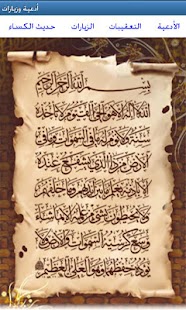 أدعية وزيارات
الأدعية التعقيبات الزيارات حديث الكساء
بسم الله الرحمن الرحيم
الله لا إله إلا هو الحي القيوم لا تأخذه
سنة ولا نوم له ما في السموات وما في
الأرض من ذا الذي يشفع عنده
إلا بإذنه يعلم ما بين أيديهم وما خلفهم
ولا يحيطون بشيء من علمه إلا بما شاء
وسع كرسيه السموات والأرض ولا
يؤده حفظهما وهو العلي العظيم